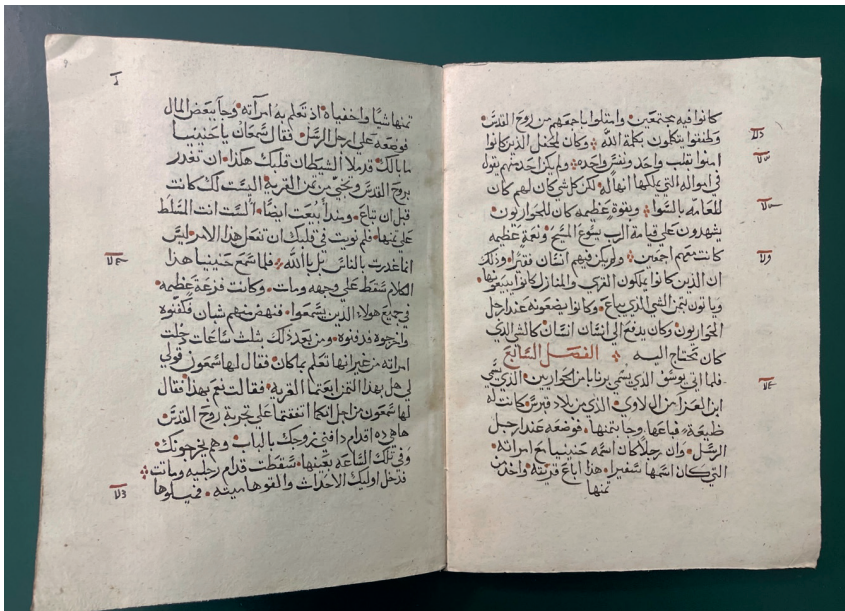 كانوا فيه مجتمعين. وامتلوا باجمعهم من روح القدس.
وطفقوا يتكلون بكلمة الله وكان لمحفل الذين كانوا
امنوا بقلب واحد ونفس واحده. ولم يكن احد منهم يقول
في امواله التي يملكها انها له. لكن كل شي كان لهم كان
للعامه بالسوا وبقوة عظمه كان للحواريون.
يشهدون علي قيامة الرب يسوع المسيح. ونعمة عظمه
كانت معهم اجمعين. ولم يكن فيهم انسان فقيرا. وذلك
ان الذين كانوا يملكون القري والمنازل كانوا يبيعونها.
وياتون بثمن الشي الذي يباع. وكانوا يضعونه عند ارجل
الحواريون. وكان يدفع الي انسان انسان كالشي الذي
كان تحتاج اليه الفصل السابع
فلما اتي يوسف الذي يسمي برنابا من الحواريين. الذي يسمي
ابن العزا من ال لاوي. الذي من بلاد قبرس. كانت له
ظيعة. فباعها. وجا بثمنها. فوضعه عند ارجل
الرسل. وان رجلا كان اسمه حنينيا مع امراته.
التي كان اسمها سفيرا. هذا اباع قريته. واخد من
ثمنها
ثمنها شيا واخفياه. اذ تعلم به امراته. وجا ببعض المال
فوضعه علي ارجل الرسل. فقال سمعان يا حنينيا
ما بالك. قد ملا الشيطان قلبك هكذا. ان تغدر
بروح القدس وتخبي من ثمن القرية. اليست لك كانت
قبل ان تباع. ومند ابيعت ايضا. الست انت المسلط
علي ثمنها. فلم نويت في قلبك ان تفعل هذا الامر. ليس
انما غدرت بالناس بل بالله فلما سمع حنينيا هذا
الكلام سقط علي وجهه ومات. وكانت فزعة عظمه.
في جميع هولاء الذين يسمعوا. فنهض منهم شبان فكفنوه
واخرجوه فدفنوه. ومن بعد ذلك بثلث ساعات دخلت
امراته من غير انها تعلم بما كان. فقال لها شمعون قولي
لي هل بهذا الثمن ابعتما القرية. فقالت نعم بهذا. فقال
لها شمعون من اجل انكما اتفقتما علي تجربة روح القدس
هاهي ده اقدام دافني زوجك بالباب. وهم يخرجونك.
وفي تلك الساعه بعينها. سقطت قدام رجليه وماتت
فدخل اوليك الاحداث والقوها ميته. فحملوها